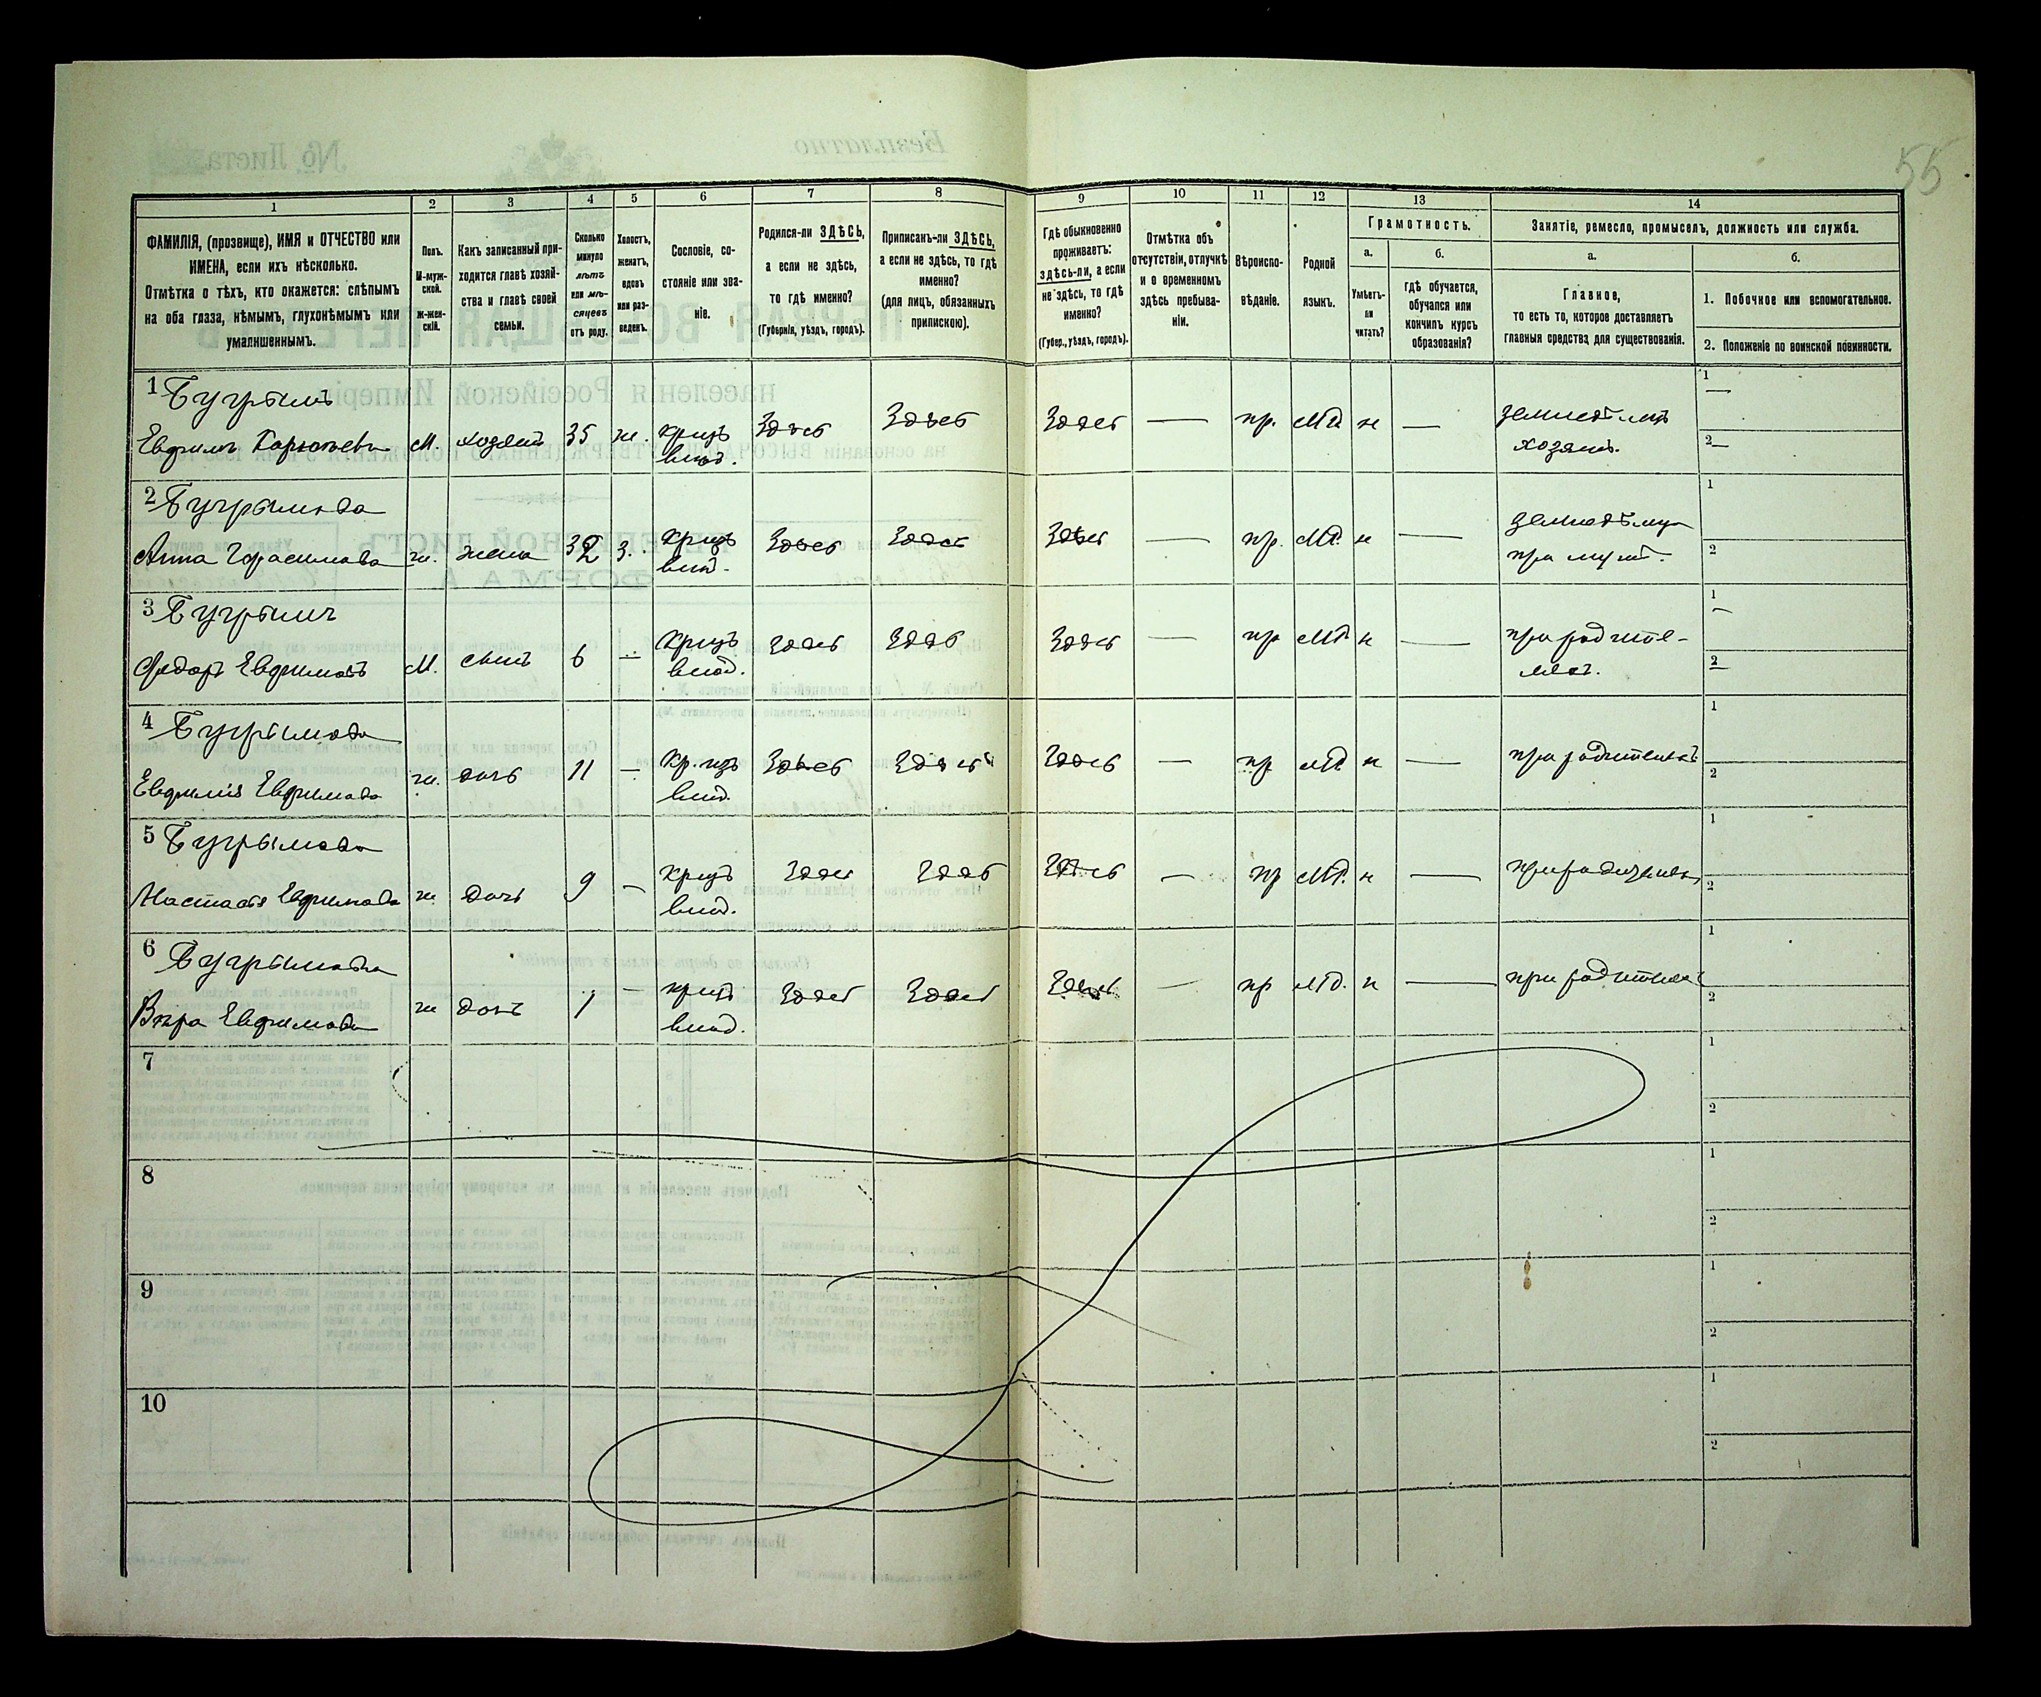 55
1 2 3 4 5 6 7 8 9 10 11 12 13 14
ФАМИЛІЯ, (прозвище), ИМЯ и ОТЧЕСТВО или
ИМЕНА, если ихъ нѣсколько.
Отмѣтка о тѣхъ, кто окажется: слѣпымъ
на оба глаза, нѣмымъ, глухонѣмымъ или
умалишеннымъ.
Полъ.
М-муж-
ской.
Ж-жен-
скій.
Какъ записанный при-
ходится главѣ хозяй-
ства и главѣ своей
семьи.
Сколько
минуло
лѣтъ
или мѣ-
сяцевъ
отъ роду.
Холостъ,
женатъ,
вдовъ
или раз-
веденъ.
Сословіе, со-
стояніе или зва-
ніе.
Родился-ли ЗДѢСЬ,
а если не здѣсь,
то гдѣ именно?
(Губернія, уѣздъ, городъ).
Приписанъ-ли ЗДѢСЬ,
а если не здѣсь, то гдѣ
именно?
(для лицъ, обязанныхъ
припискою).
Гдѣ обыкновенно
проживаетъ:
здѣсь-ли, а если
не здѣсь, то гдѣ
именно?
(Губер., уѣздъ, городъ).
Отмѣтка объ
отсутствіи, отлучкѣ
и о временномъ
здѣсь пребыва-
ніи.
Вѣроиспо-
вѣданіе.
Родной
языкъ.
Грамотность.
а.
Умѣетъ-
ли
читать?
б.
гдѣ обучается,
обучался или
кончилъ курсъ
образованія?
Занятіе, ремесло, промыселъ, должность или служба.
а.
Главное,
то есть то, которое доставляетъ
главныя средства для существованія.
б.
1. Побочное или вспомогательное.
2. Положеніе по воинской повинности.
1 Бугрымъ
Евфимъ М. хозяинъ 35 ж. кр. изъ Здѣсь Здѣсь Здѣсь — пр. МР. н — земледѣлецъ 1 —
влад. хозяинъ. 2 —
2 Бугрымова
Анна Герасимова ж. жена 32 з. кр. изъ Здѣсь Здѣсь Здѣсь — пр. МР. н — 1
влад. при мужѣ. 2
3 Бугрымъ
Федоръ Евфимовъ М. сынъ 6 — кр. изъ Здѣсь Здѣсь Здѣсь — пр МР н — при родите- 1 —
влад. ляхъ. 2 —
4 Бугрымова
Евфимія Евфимова ж. дочь 11 — кр. изъ Здѣсь Здѣсь Здѣсь — пр МР н — при родителяхъ 1
влад. 2
5 Бугрымова
Настасья Евфимова ж. дочь 9 — кр. изъ Здѣсь Здѣсь Здѣсь — пр МР. н — при родителяхъ 1
влад. 2
6 Бугрымова
Вѣра Евфимова ж дочь 1 — кр. изъ Здѣсь Здѣсь Здѣсь — пр МР. н — при родителяхъ 1
влад. 2
7 1
2
8 1
2
9 1
2
10 1
2